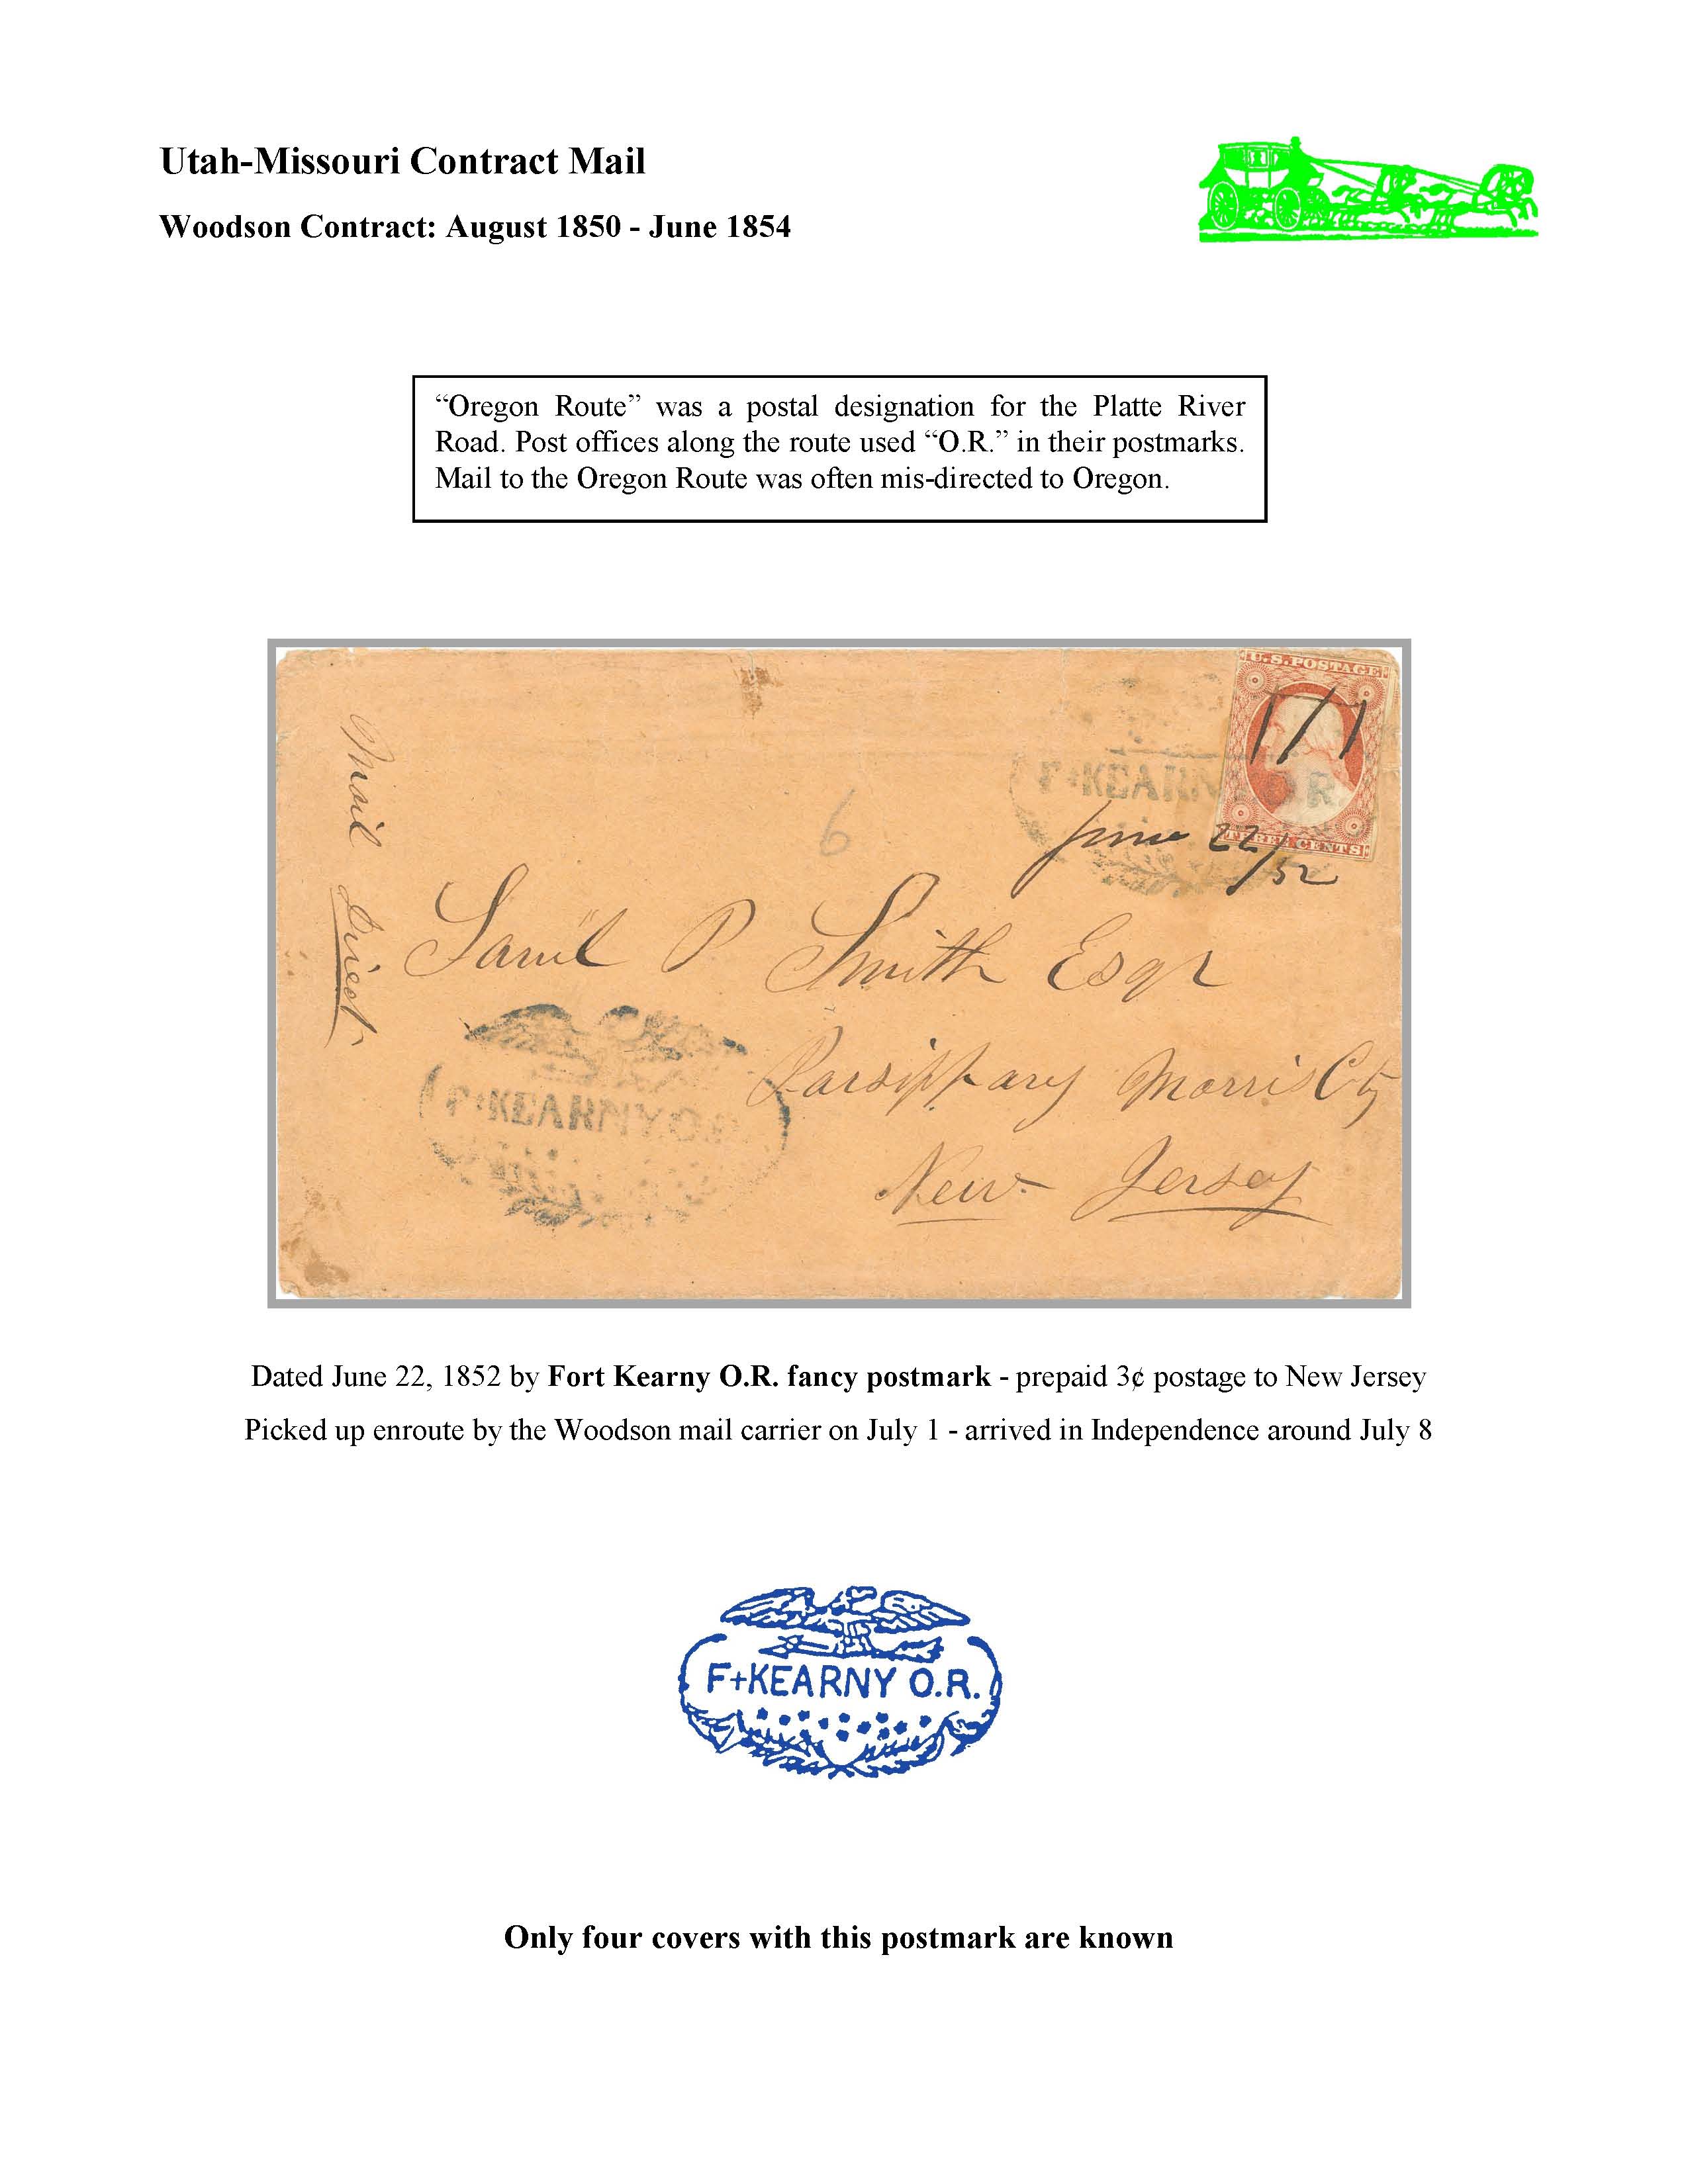 Utah-Missouri Contract Mail
Woodson Contract: August 1850 - June 1854
“Oregon Route” was a postal designation for the Platte River
Road. Post offices along the route used “O.R.” in their postmarks.
Mail to the Oregon Route was often mis-directed to Oregon.
U.S. POSTAGE
F+KEARNY O R
THREE CENTS
June 22/52
6
Mail Direct
Saml P Smith Esqr
Parsippany Morris Cty
New Jersey
F+KEARNY O.R.
Dated June 22, 1852 by Fort Kearny O.R. fancy postmark - prepaid 3¢ postage to New Jersey
Picked up enroute by the Woodson mail carrier on July 1 - arrived in Independence around July 8
F+KEARNY O.R.
Only four covers with this postmark are known